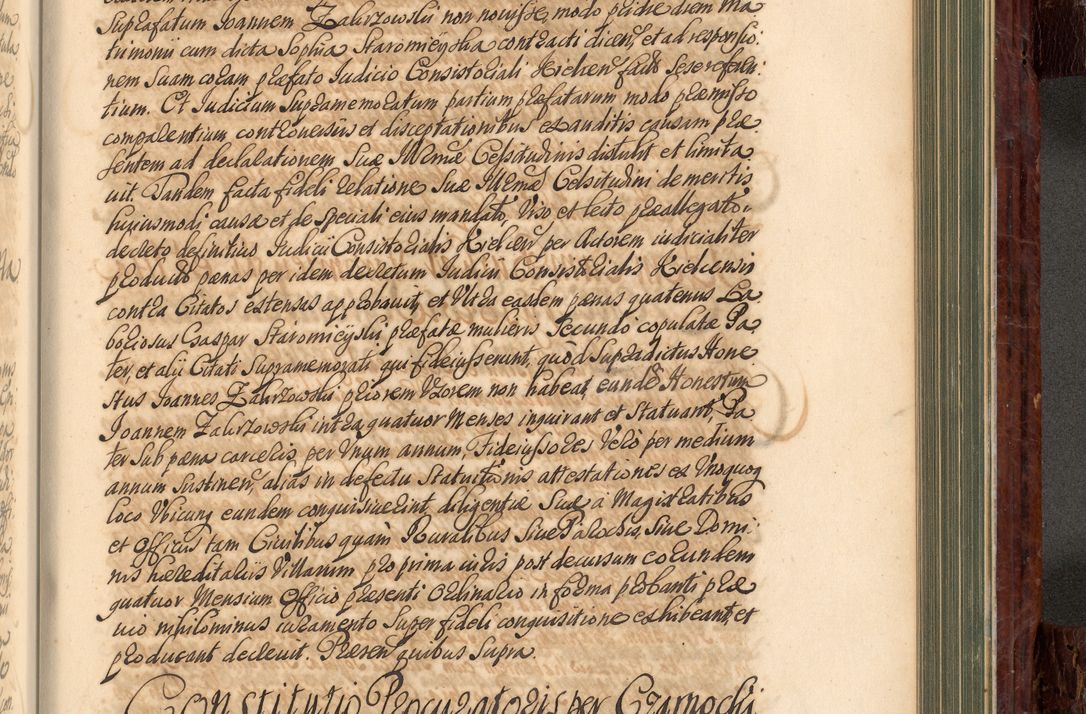 Suprafatum Joannem Zakrzowski non novisse, modo pridie diem Ma
trimonii cum dicta Sophia Staromieyska contracti dicens, et ad responsio:
nem Suam coram præfato Judicio Consistoriali Kielcen facto Se se referen:
tium. Et Judicium Supramemoratum partium præfatarum modo præmisso
comparentium controversiis et disceptationibus exauditis causam præ
sentem ad declarationem Suæ Illrmæ Celsitudinis distulit et limita
vit. Tandem facta fideli relatione Suæ Illrmæ Celsitudini de meritis
hujusmodi causæ et de speciali eius mandato, Viso et lecto præallegato
decreto definitivo Judicii Consistorialis Kielcen per Actorem iudicialiter
producto pænas per idem decretum Judicii Consistorialis Kielcensis
contra Citatos extensas approbavit, et Ultra easdem pænas quatenus La
boriosus Gaspar Staromieyski præfatæ mulieris Secundo copulatæ Pa
ter, et alij Citati Supramemorati qui fideiusserunt, quod Supradictus Hone
stus Joannes Zakrzowski priorem Uxorem non habeat, eundē Honestum
Joannem Zakrzowski intra quatuor Menses inquirant et Statuant, Pa
ter sub pæna carceris, per Unum annum, Fideiussores Vero per medium
annum Sustinen, alias in defectu Statuitionis attestationes ex Unoquoq
loco Ubicunq eundem conquisiverint, diligentiæ Suæ a Magistratibus
et Officiis tam Civilibus quam Ruralibus Sive Parochis, Sive Domi:
nis hæreditariis Villarum, pro prima iuris post decursum eorundem
quatuor Mensium Officio præsenti Ordinario in forma probanti præ
vio nihilominus iuramento Super fideli conquisitione exhibeant, et
producant decrevit. Præsen quibus Supra.
Constitutio Procuratoris per Czarnocki